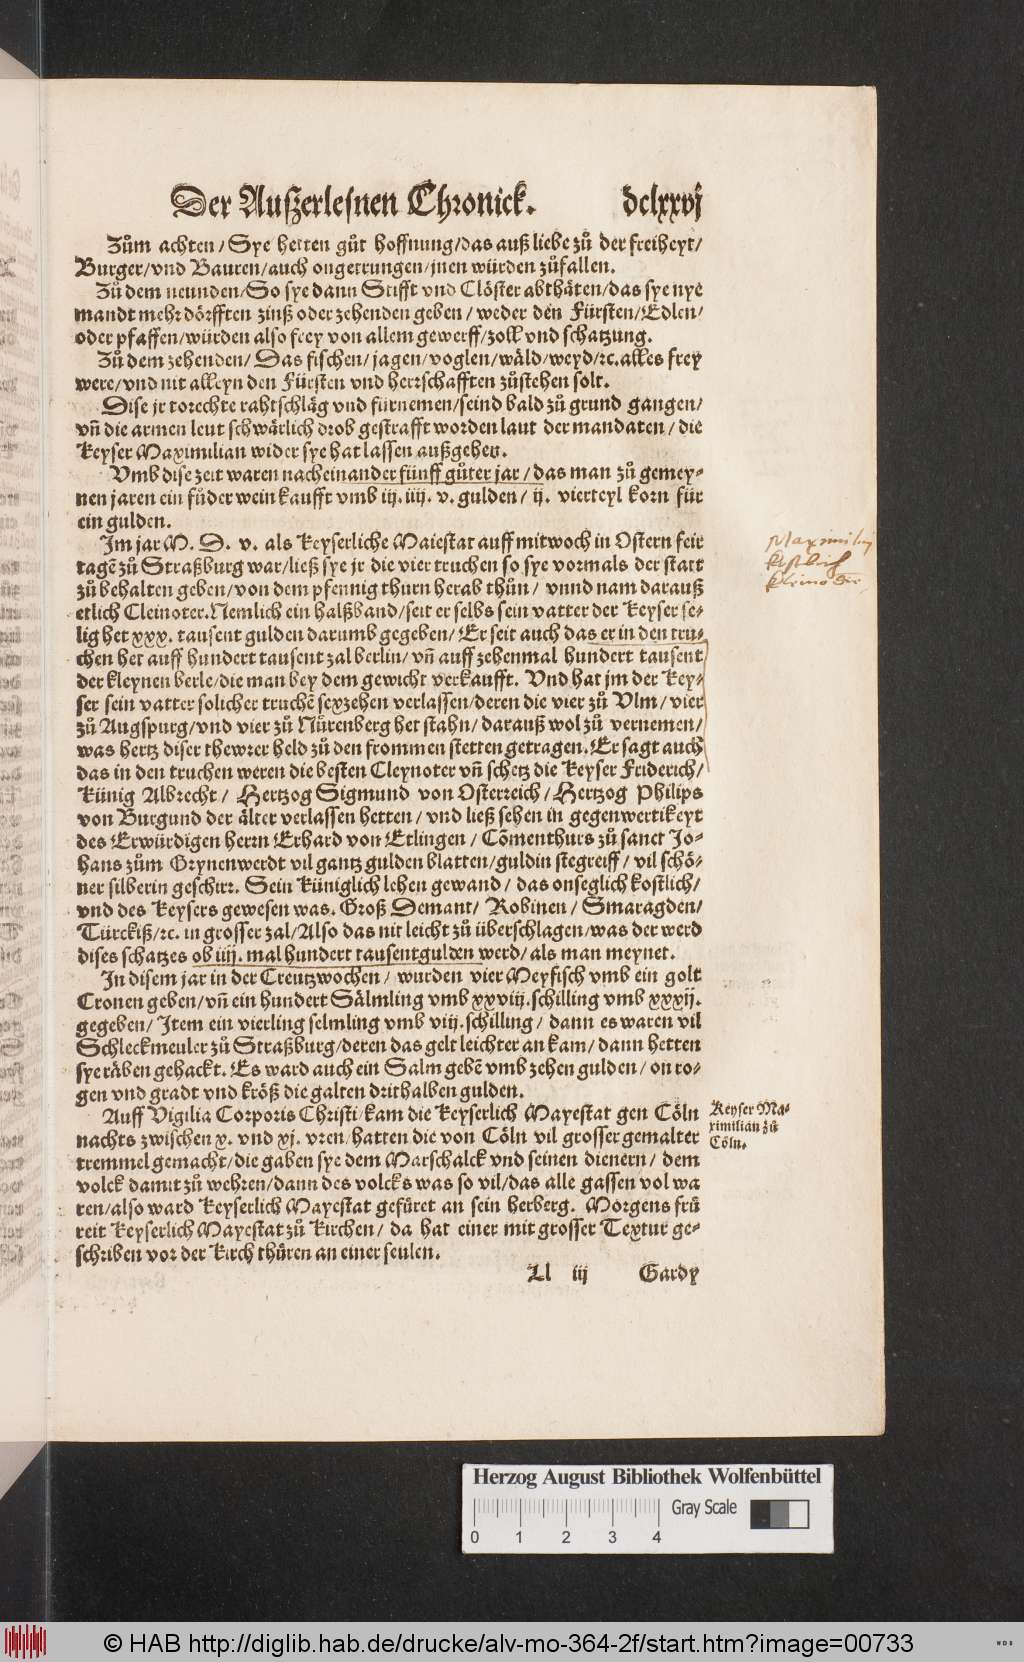 Der Außerlesnen Chronick. dclxxvj
Zům achten / Sye hetten gůt hoffnung / das auß liebe zů der freiheyt /
Burger / vnd Bauren / auch ongetrungen / jnen würden zůfallen.
Zů dem neunden / So sye dann Stifft vnd Clöster abthäten / das sye nye
mandt mehr dörfften zinß oder zehenden geben / weder den Fürsten / Edlen /
oder pfaffen / würden also frey von allem gewerff / zoll vnd schatzung.
Zů dem zehenden / Das fischen / jagen / voglen / wäld / weyd / ꝛc. alles frey
were / vnd nit alleyn den Fürsten vnd herrschafften zůstehen solt.
Dise jr torechte rahtschläg vnd fürnemen / seind bald zů grund gangen /
vñ die armen leut schwärlich drob gestrafft worden laut der mandaten / die
Keyser Maximilian wider sye hat lassen außgehen.
Vmb dise zeit waren nacheinander fünff gůter jar / das man zů gemey-
nen jaren ein fůder wein kaufft vmb iij. iiij. v. gulden / ij. vierteyl korn für
ein gulden.
Im jar M. D. v. als Keyserliche Maiestat auff mitwoch in Ostern feir
tagẽ zů Straßburg war / ließ sye jr die vier truchen so sye vormals der statt
zů behalten geben / von dem pfennig thurn herab thůn / vnnd nam darauß
etlich Cleinoter. Nemlich ein halßband / seit er selbs sein vatter der Keyser se-
lig het xxx. tausent gulden darumb gegeben / Er seit auch das er in den tru-
chen het auff hundert tausent zal berlin / vñ auff zehenmal hundert tausent
der kleynen berle / die man bey dem gewicht verkaufft. Vnd hat jm der Key-
ser sein vatter solicher truchẽ sexzehen verlassen / deren die vier zů Vlm / vier
zů Augspurg / vnd vier zů Nürenberg het stahn / darauß wol zů vernemen /
was hertz diser thewrer held zů den frommen stetten getragen. Er sagt auch
das in den truchen weren die besten Cleynoter vñ schetz die Keyser Friderich /
Künig Albrecht / Hertzog Sigmund von Osterreich / Hertzog Philips
von Burgund der älter verlassen hetten / vnd ließ sehen in gegenwertikeyt
des Erwürdigen herrn Erhard von Etlingen / Cõmenthurs zů sanct Jo-
hans zům Grynenwerdt vil gantz gulden blatten / guldin stegreiff / vil schö-
ner silberin geschirr. Sein Küniglich lehen gewand / das onseglich kostlich /
vnd des Keysers gewesen was. Groß Demant / Robinen / Smaragden /
Türckiß / ꝛc. in grosser zal / Also das nit leicht zů überschlagen / was der werd
dises schatzes ob iiij. mal hundert tausent gulden werd / als man meynet.
In disem jar in der Creutzwochen / wurden vier Meyfisch vmb ein golt
Cronen geben / vñ ein hundert Sälmling vmb xxviij. schilling vmb xxxij.
gegeben / Item ein vierling selmling vmb viij. schilling / dann es waren vil
Schleckmeuler zů Straßburg / deren das gelt leichter an kam / dann hetten
sye räben gehackt. Es ward auch ein Salm gebẽ vmb zehen gulden / on ro-
gen vnd gradt vnd kröß die galten drithalben gulden.
Auff Vigilia Corporis Christi / kam die Keyserlich Mayestat gen Cöln
nachts zwischen x. vnd xj. vren / hatten die von Cöln vil grosser gemalter
tremmel gemacht / die gaben sye dem Marschalck vnd seinen dienern / dem
volck damit zů wehren / dann des volcks was so vil / das alle gassen vol wa
ren / also ward Keyserlich Mayestat gefůret an sein herberg. Morgens frů
reit Keyserlich Mayestat zů Kirchen / da hat einer mit grosser Textur ge-
schriben vor der Kirch thüren an einer seulen.
Ll iij Gardy
Maximilij
Keyser Ma-
ximilian zů
Cöln.
Herzog August Bibliothek Wolfenbüttel
Gray Scale
0 1 2 3 4
© HAB http://diglib.hab.de/drucke/alv-mo-364-2f/start.htm?image=00733